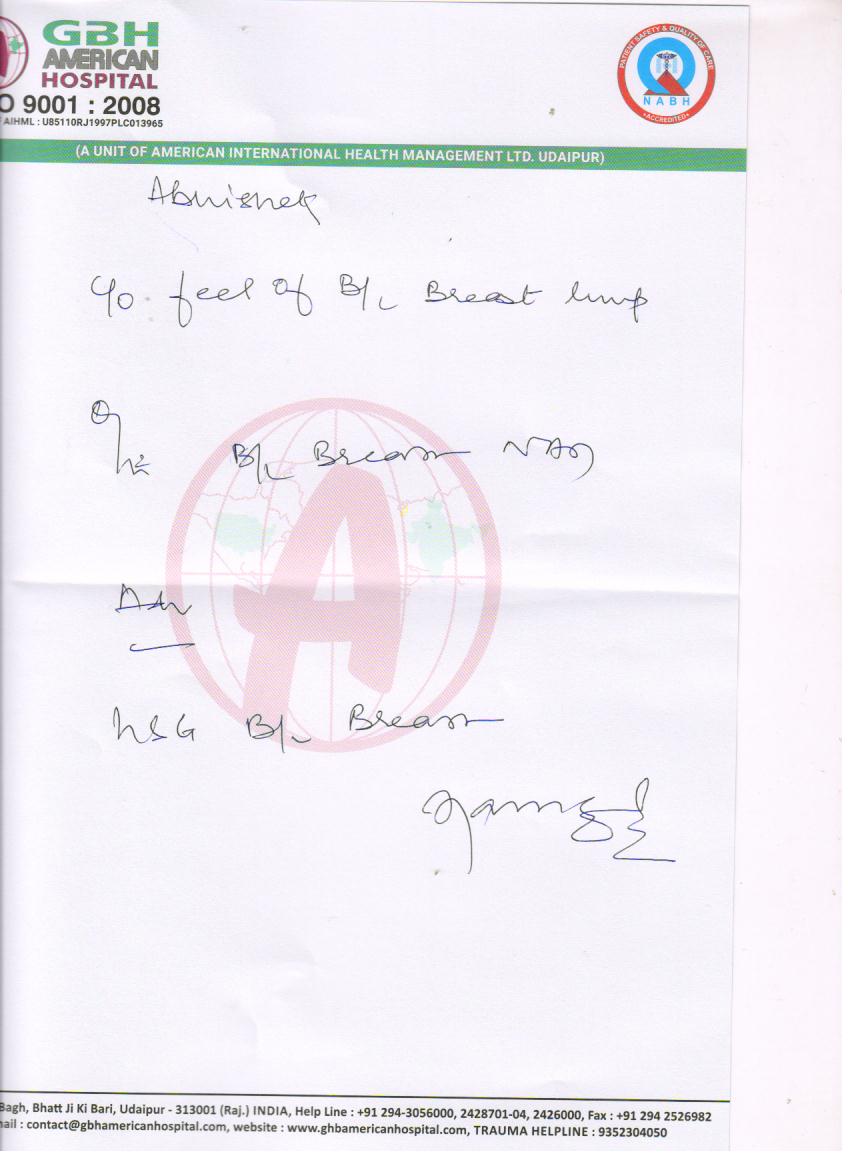 GBH
AMERICAN
HOSPITAL
O 9001 : 2008
AIHML : U85110RJ1997PLC013965
PATIENT SAFETY & QUALITY OF CARE
NABH
• ACCREDITED •
(A UNIT OF AMERICAN INTERNATIONAL HEALTH MANAGEMENT LTD. UDAIPUR)
Abhishek
C/o feel of B/L Breast lump
O/E B/L Breast NAD
Adv
USG B/L Breast
Bagh, Bhatt Ji Ki Bari, Udaipur - 313001 (Raj.) INDIA, Help Line : +91 294-3056000, 2428701-04, 2426000, Fax : +91 294 2526982
ail : contact@gbhamericanhospital.com, website : www.ghbamericanhospital.com, TRAUMA HELPLINE : 9352304050